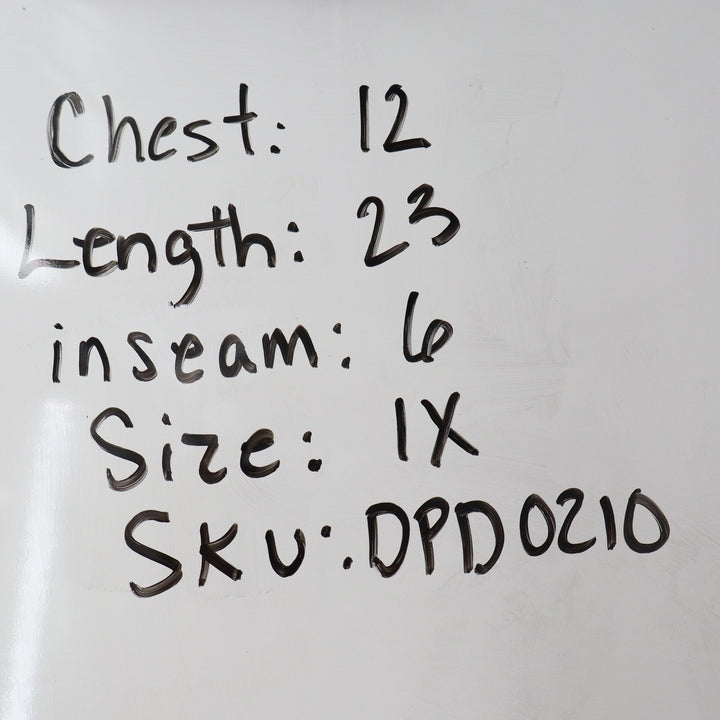 Chest: 12
Length: 23
inseam: 6
Size: 1X
SKU: DPD0210